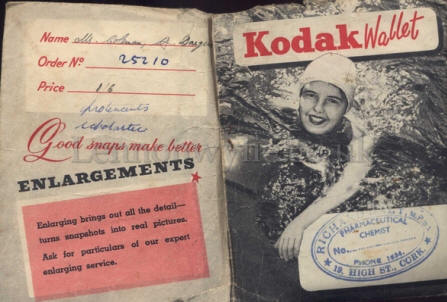 Name Mr.
Order Nº 25210
Price 1/6
Good snaps make better
ENLARGEMENTS
Enlarging brings out all the detail—
turns snapshots into real pictures.
Ask for particulars of our expert
enlarging service.
Kodak Wallet
PHARMACEUTICAL
CHEMIST
No.
PHONE 1634.
19, HIGH ST., CORK